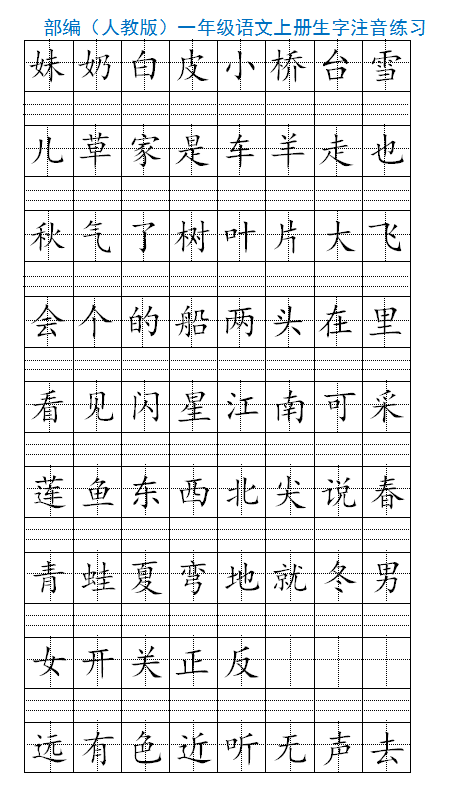 部编（人教版）一年级语文上册生字注音练习
妹奶白皮小桥台雪
儿草家是车羊走也
秋气了树叶片大飞
会个的船两头在里
看见闪星江南可采
莲鱼东西北尖说春
青蛙夏弯地就冬男
女开关正反
远有色近听无声去